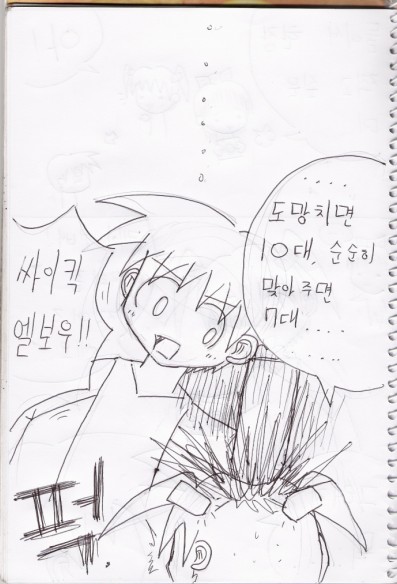 ....
도망치면
10대, 순순히
맞아주면
7대....
....
싸이킥
엘보우!!
퍽